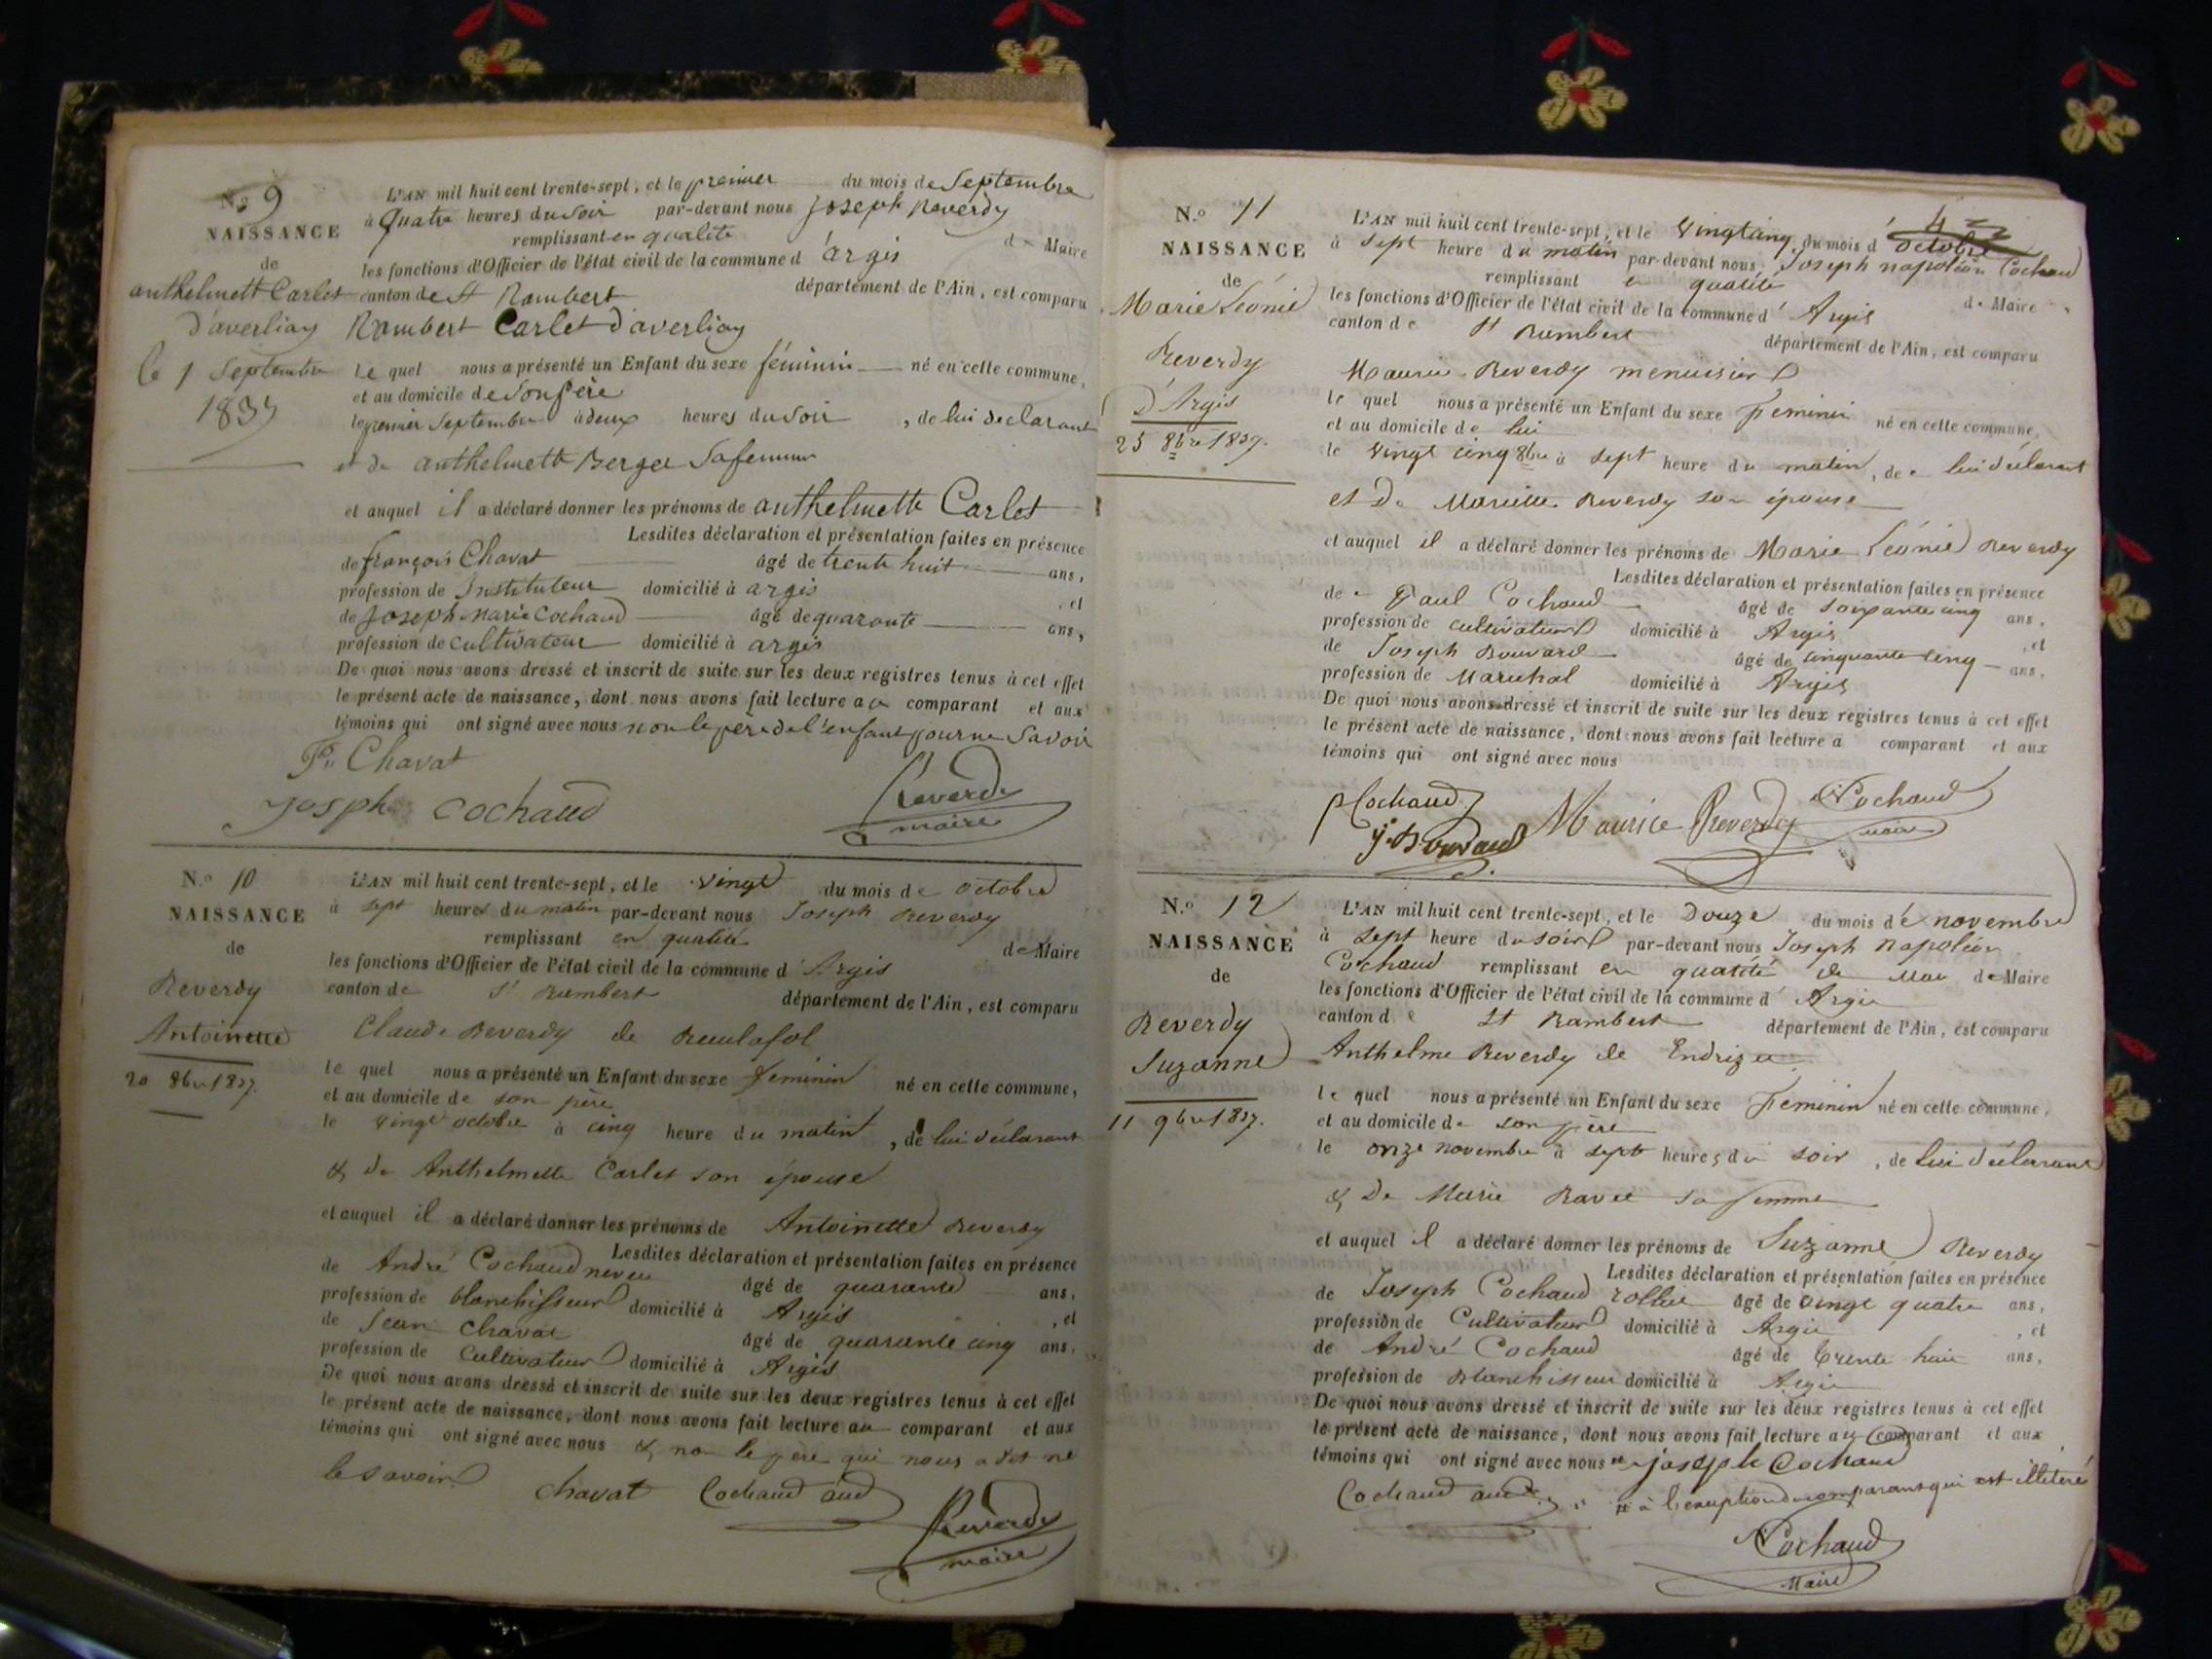 N.º 9
NAISSANCE
de
anthelmett Carlet
d'averliay
le 1 Septembre
1837
L'AN mil huit cent trente-sept, et le premier du mois de Septembre
à quatre heures du soir par-devant nous joseph Reverdy
remplissant en qualité de Maire
les fonctions d'Officier de l'état civil de la commune d'argis
canton de St Rambert département de l'Ain, est comparu
Rambert Carlet d'averliay
le quel nous a présenté un Enfant du sexe féminin né en cette commune,
et au domicile de son père
le premier Septembre à deux heures du soir, de lui declarant
et de anthelmett Berger sa femme
et auquel il a déclaré donner les prénoms de anthelmette Carlet
Lesdites déclaration et présentation faites en présence
de françois Chavat âgé de trente huit ans,
profession de Instituteur domicilié à argis, et
de joseph marie Cochaud âgé de quarante ans,
profession de cultivateur domicilié à argis
De quoi nous avons dressé et inscrit de suite sur les deux registres tenus à cet effet
le présent acte de naissance, dont nous avons fait lecture au comparant et aux
témoins qui ont signé avec nous non le père de l'enfant pour ne savoir
Chavat
Josph cochaud
Reverdy
maire
N.º 10
NAISSANCE
de
Reverdy
Antoinette
20 8bre 1837.
L'AN mil huit cent trente-sept, et le vingt du mois de octobre
à sept heures du matin par-devant nous Joseph Reverdy
remplissant en qualité de Maire
les fonctions d'Officier de l'état civil de la commune d'Argis
canton de St Rambert département de l'Ain, est comparu
Claude Reverdy de
le quel nous a présenté un Enfant du sexe feminin né en cette commune,
et au domicile de son père
le vingt octobre à cinq heure du matin, de lui déclarant
& de Anthelmette Carlet son épouse
et auquel il a déclaré donner les prénoms de Antoinette Reverdy
Lesdites déclaration et présentation faites en présence
de André Cochaud neveu âgé de quarante ans,
profession de blanchisseur domicilié à Argis, et
de Jean Chavat âgé de quarante cinq ans,
profession de Cultivateur domicilié à Argis
De quoi nous avons dressé et inscrit de suite sur les deux registres tenus à cet effet
le présent acte de naissance, dont nous avons fait lecture au comparant et aux
témoins qui ont signé avec nous & non le père qui nous a dit ne
le savoir.
Chavat Cochaud and
Reverdy
maire
N.º 11
NAISSANCE
de
Marie Léonie
Reverdy
D'Argis
25 8bre 1837.
L'AN mil huit cent trente-sept, et le vingt cinq du mois d'octobre
à sept heure du matin par-devant nous Joseph napoléon Cochaud
remplissant en qualité de Maire
les fonctions d'Officier de l'état civil de la commune d'Argis
canton de St Rambert département de l'Ain, est comparu
Maurice Reverdy menuisier
le quel nous a présenté un Enfant du sexe feminin né en cette commune,
et au domicile de lui
le vingt cinq 8bre à sept heure du matin, de lui déclarant
et De Mariette Reverdy son épouse
et auquel il a déclaré donner les prénoms de Marie Léonie Reverdy
Lesdites déclaration et présentation faites en présence
de Paul Cochaud âgé de soixante cinq ans,
profession de cultivateur domicilié à Argis, et
de Joseph Bouvard âgé de cinquante cinq ans,
profession de Marechal domicilié à Argis
De quoi nous avons dressé et inscrit de suite sur les deux registres tenus à cet effet
le présent acte de naissance, dont nous avons fait lecture a comparant et aux
témoins qui ont signé avec nous
P Cochaud Maurice Reverdy N Cochaud
J. Bouvard maire
N.º 12
NAISSANCE
de
Reverdy
Suzanne
11 9bre 1837.
L'AN mil huit cent trente-sept, et le Douze du mois de novembre
à sept heure du soir par-devant nous Joseph Napoléon
Cochaud remplissant en qualité de de Maire
les fonctions d'Officier de l'état civil de la commune d'Argis
canton de St Rambert département de l'Ain, est comparu
Anthelme Reverdy de
le quel nous a présenté un Enfant du sexe Feminin né en cette commune,
et au domicile de son père
le onze novembre à sept heures du soir, de lui déclarant
& De Marie Ravet sa femme
et auquel il a déclaré donner les prénoms de Suzanne Reverdy
Lesdites déclaration et présentation faites en présence
de Joseph Cochaud âgé de vingt quatre ans,
profession de Cultivateur domicilié à Argis, et
de André Cochaud âgé de trente huit ans,
profession de Blanchisseur domicilié à Argis
De quoi nous avons dressé et inscrit de suite sur les deux registres tenus à cet effet
le présent acte de naissance, dont nous avons fait lecture au comparant et aux
témoins qui ont signé avec nous # joseph Cochaud
Cochaud and # à l'exception du comparant qui est illiteré
N Cochaud
Maire